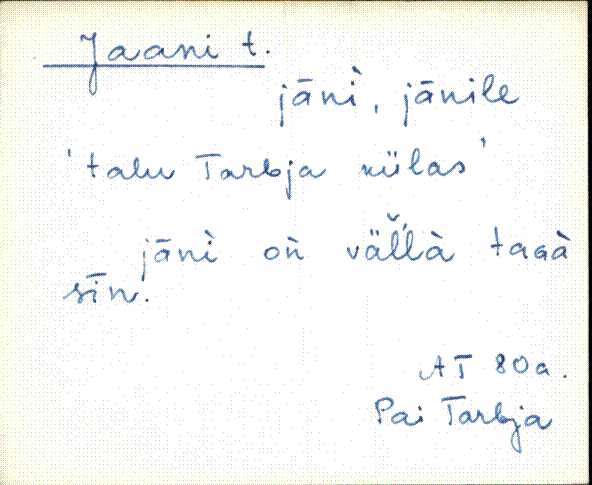 Jaani t.
jāǹi, jānile
'talu Tarbja külas'
jāǹi oǹ väĺ̆ĺà tagà
sīn.
AT 80a.
Pai Tarbja